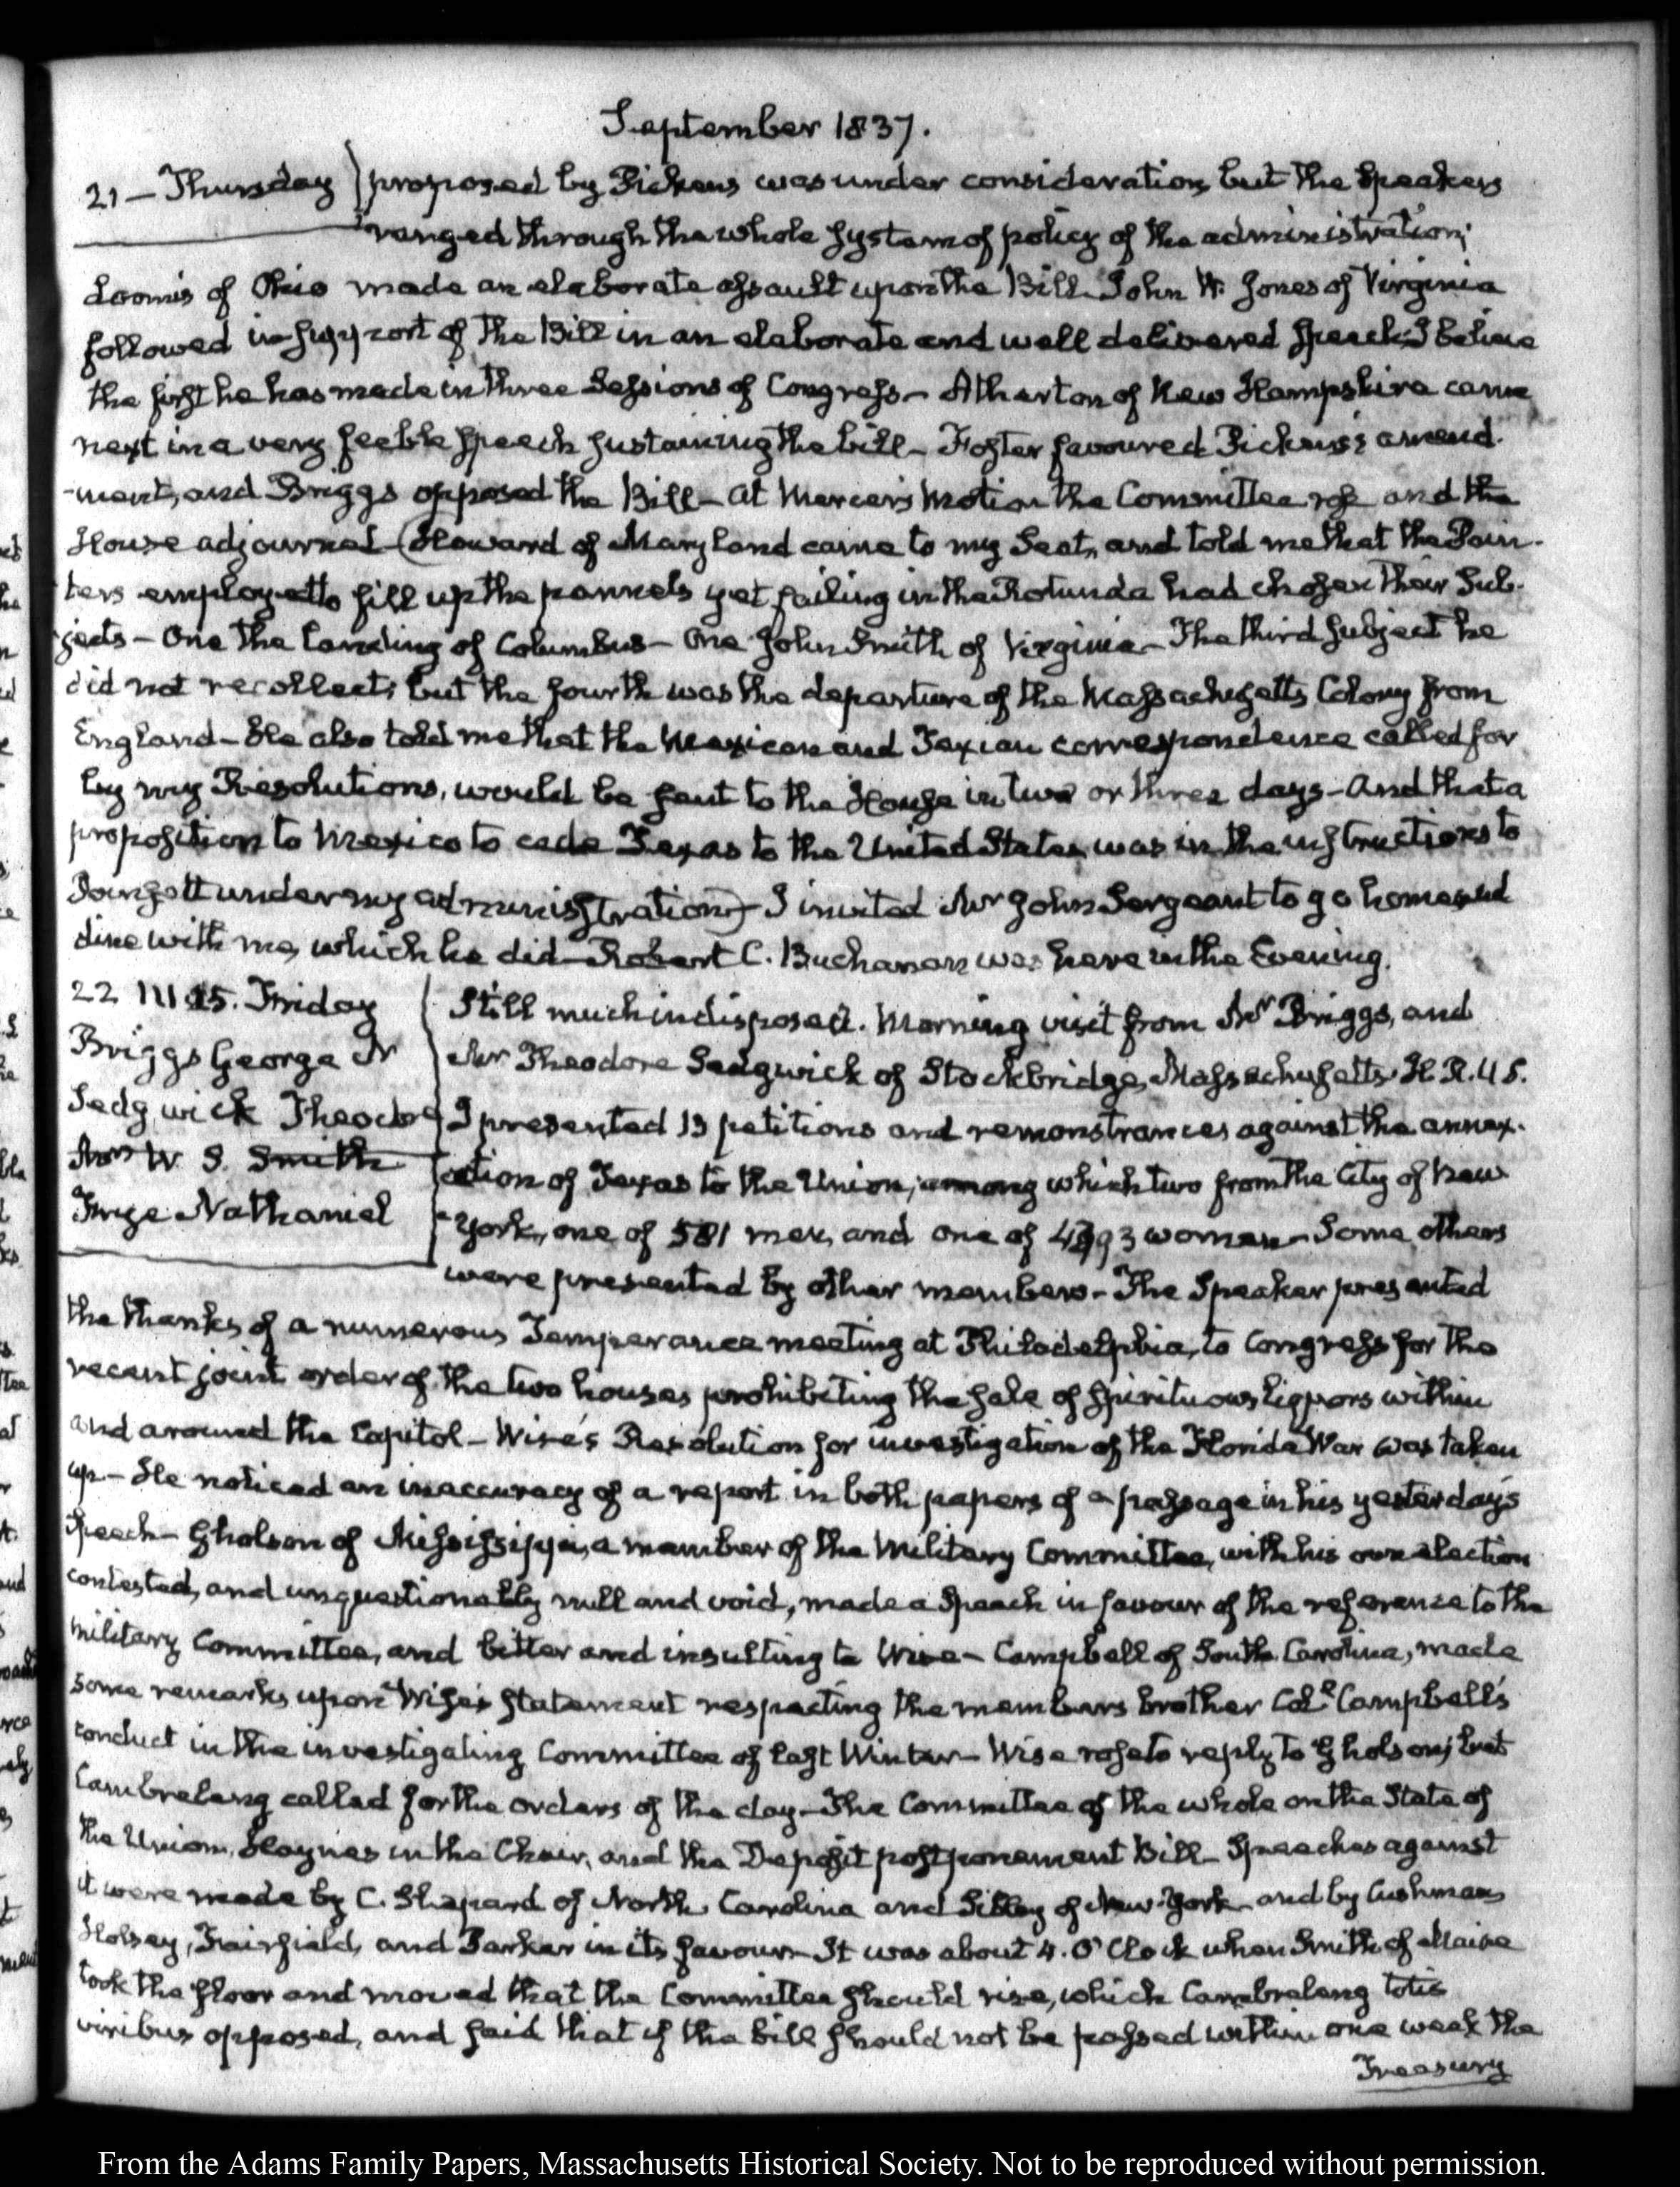 September 1837.
21 — Thursday proposed by Pickens was under consideration, but the Speakers
ranged through the whole system of policy of the administration;
Loomis of Ohio made an elaborate assault upon the Bill. John W. Jones of Virginia
followed in support of the Bill in an elaborate and well delivered speech; I believe
the first he has made in three Sessions of Congress — Atherton of New Hampshire came
next in a very feeble speech sustaining the bill — Foster favoured Pickens's amend-
-ment, and Briggs opposed the Bill — At Mercer's motion the Committee rose and the
House adjourned — (Howard of Maryland came to my Seat, and told me that the Pain-
ters employed to fill up the pannels yet failing in the Rotunda had chosen their Sub-
jects — One the Landing of Columbus — One John Smith of Virginia — The third subject he
did not recollect; but the fourth was the departure of the Massachusetts Colony from
England — He also told me that the Mexican and Texian correspondence called for
by my Resolutions, would be sent to the House in two or three days — And that a
proposition to Mexico to cede Texas to the United States was in the instructions to
Poinsett under my administration) — I invited Mr John Sergeant to go home and
dine with me, which he did — Robert C. Buchanan was here in the Evening.
22 III 15. Friday
Briggs George N
Sedgwick Theodore
Mrs W. S. Smith
Frye Nathaniel
Still much indisposed. Morning visit from Mr Briggs, and
Mr Theodore Sedgwick of Stockbridge, Massachusetts. H.R.U.S.
I presented 13 petitions and remonstrances against the annex-
ation of Texas to the Union, among which two from the City of New-
York, one of 581 men, and one of women — Some others
were presented by other members — The Speaker presented
the thanks of a numerous Temperance meeting at Philadelphia, to Congress for the
recent joint order of the two houses prohibiting the sale of spirituous liquors within
and around the Capitol — Wise's Resolution for investigation of the Florida War was taken
up — He noticed an inaccuracy of a report in both papers of a passage in his yesterday's
speech — Gholson of Mississippi, a member of the Military Committee, with his own election
contested, and unquestionably null and void, made a Speech in favour of the reference to the
military Committee, and bitter and insulting to Wise — Campbell of South Carolina, made
some remarks upon Wise's statement respecting the members brother Coll Campbell's
conduct in the investigating Committee of last Winter — Wise rose to reply to Gholson; but
Cambreleng called for the orders of the day — The Committee of the whole on the State of
the Union, Haynes in the Chair, and the Deposit postponement Bill — Speeches against
it were made by C. Shepard of North Carolina and Sibley of New-York — and by Cushman
Holsey, Fairfield, and Parker in its favour — It was about 4. O'Clock when Smith of Maine
took the floor and moved that the Committee should rise, which Cambreleng totis
viribus opposed, and said that if the bill should not be passed within one week the
Treasury
From the Adams Family Papers, Massachusetts Historical Society. Not to be reproduced without permission.